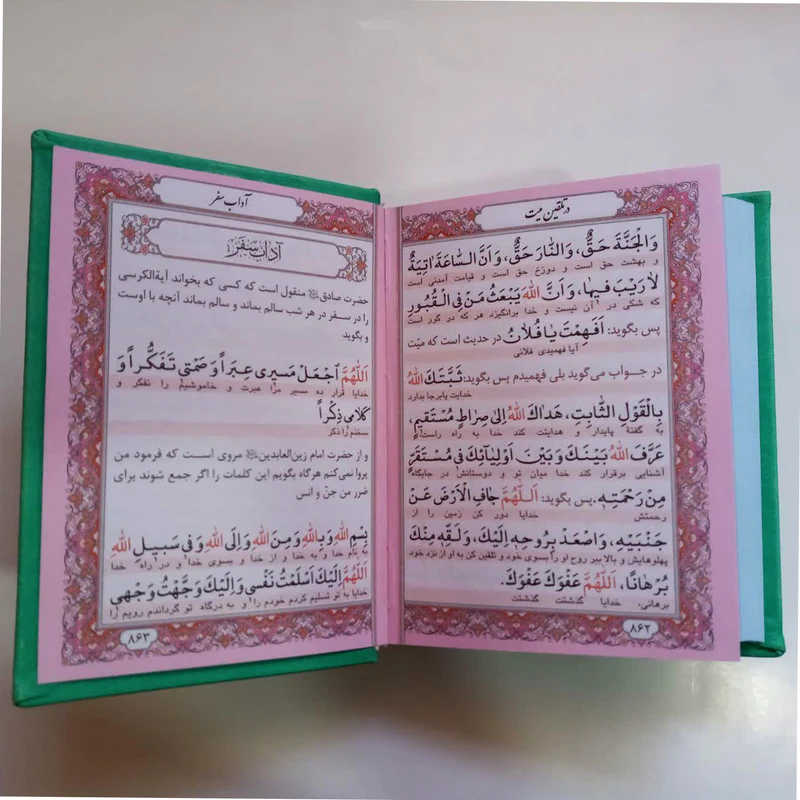 در تلقین میت
وَالْجَنَّةَ حَقٌّ، وَالنّٰارَ حَقٌّ، وَاَنَّ السّٰاعَةَ اٰتِیَةٌ
و بهشت حق است و دوزخ حق است و قیامت آمدنی است
لٰا رَیْبَ فیهٰا، وَاَنَّ اللهَ یَبْعَثُ مَنْ فِی الْقُبُورِ
که شکی در آن نیست و خدا برانگیزد هر که در گور است
پس بگوید: اَفَهِمْتَ یٰا فُلٰانُ در حدیث است که میّت
آیا فهمیدی فلانی
در جواب می‌گوید بلی فهمیدم پس بگوید: ثَبَّتَكَ اللهُ
خدایت پابرجا بدارد
بِالْقَوْلِ الثّٰابِتِ، هَدٰاكَ اللهُ اِلیٰ صِرٰاطٍ مُسْتَقیمٍ،
به گفتهٔ پایدار و هدایتت کند خدا به راه راست
عَرَّفَ اللهُ بَیْنَكَ وَبَیْنَ اَوْلِیٰائِكَ فی مُسْتَقَرٍّ
آشنایی برقرار کند خدا میان تو و دوستانش در جایگاه
مِنْ رَحْمَتِهِ. پس بگوید: اَللّٰهُمَّ جٰافِ الْاَرْضَ عَنْ
رحمتش خدایا دور کن زمین را از
جَنْبَیْهِ، وَاصْعَدْ بِرُوحِهِ اِلَیْكَ، وَلَقِّهِ مِنْكَ
پهلوهایش و بالا ببر روح او را بسوی خود و تلقین کن به او از نزد خود
بُرْهٰانًا، اَللّٰهُمَّ عَفْوَكَ عَفْوَكَ.
برهانی. خدایا گذشتت گذشتت
۸۶۲
آداب سفر
آداب سفر
حضرت صادق منقول است که کسی که بخواند آیةالکرسی
را در سفر در هر شب سالم بماند و سالم بماند آنچه با اوست
و بگوید
اَللّٰهُمَّ اجْعَلْ مَسیری عِبَراً وَصَمْتی تَفَکُّراً وَ
خدایا قرار ده مسیر مرا عبرت و خاموشیم را تفکر و
کَلٰامی ذِکْراً
سخنم را ذکر
و از حضرت امام زین‌العابدین مروی است که فرمود من
پروا نمی‌کنم هرگاه بگویم این کلمات را اگر جمع شوند برای
ضرر من جن و انس
بِسْمِ اللهِ وَبِاللهِ وَمِنَ اللهِ وَاِلَی اللهِ وَفی سَبیلِ اللهِ
به نام خدا و به خدا و از خدا و بسوی خدا و در راه خدا
اَللّٰهُمَّ اِلَیْكَ اَسْلَمْتُ نَفْسی وَاِلَیْكَ وَجَّهْتُ وَجْهی
خدایا به تو تسلیم کردم خودم را و به درگاه تو گرداندم رویم را
۸۶۳